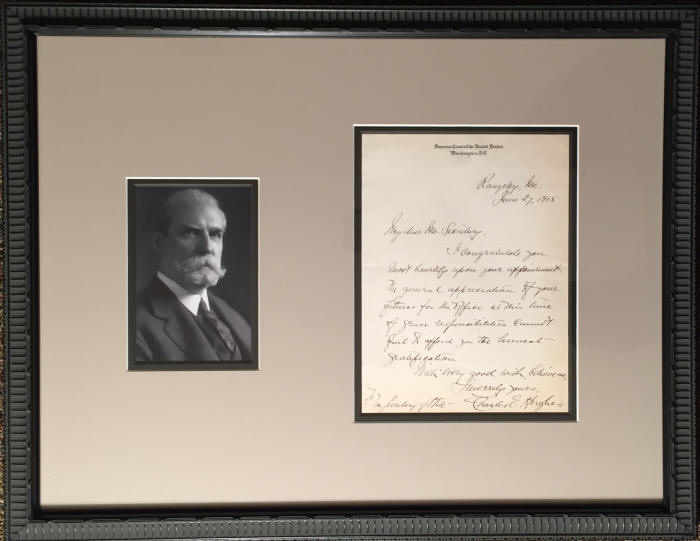 Supreme Court of the United States.
Washington, D.C.
Rangeley, Me.
June 27, 1915
My dear Mr. Secretary,
I congratulate you
most heartily upon your appointment.
The general appreciation of your
fitness for the office at this time
of grave responsibilities cannot
fail to afford you the keenest
gratification.
With every good wish, believe me,
Sincerely yours,
Charles E. Hughes
To
The Secretary of State